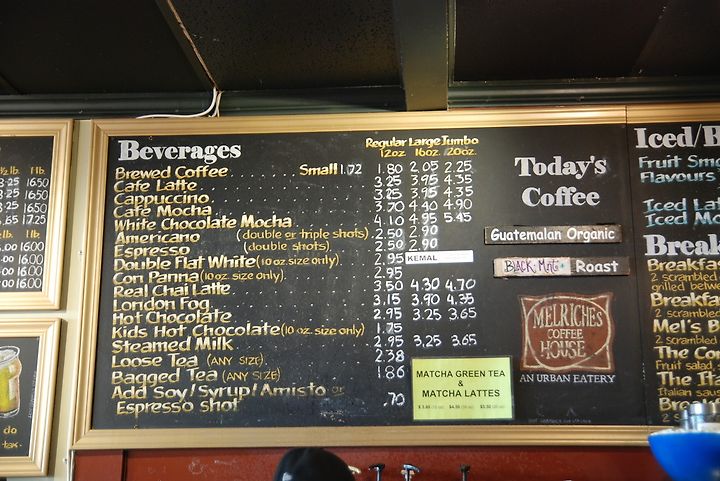 ½ lb. 1 lb.
16.50
16.50
16.50
17.25
½ lb. 1 lb.
16.00
16.00
16.00
16.00
do
tax.
Beverages
Regular Large Jumbo
12oz 16oz. 20oz.
Brewed Coffee Small 1.72 1.80 2.05 2.25
Cafe Latte 3.25 3.95 4.35
Cappuccino 3.25 3.95 4.35
Cafe Mocha 3.70 4.40 4.90
White Chocolate Mocha 4.10 4.95 5.45
Americano (double or triple shots) 2.50 2.90
Espresso (double shots) 2.50 2.90
Double Flat White (10 oz. size only) 2.95 KEMAL
Con Panna (10 oz. size only) 2.95
Real Chai Latte 3.50 4.30 4.70
London Fog 3.15 3.90 4.35
Hot Chocolate 2.95 3.25 3.65
Kids Hot Chocolate (10 oz. size only) 1.75
Steamed Milk 2.95 3.25 3.65
Loose Tea (ANY SIZE) 2.38
Bagged Tea (ANY SIZE) 1.86
Add Soy/Syrup/Amisto or
Espresso shot .70
MATCHA GREEN TEA
&
MATCHA LATTES
Today's
Coffee
Guatemalan Organic
Black Mnt. Roast
MELRICHES
COFFEE
HOUSE
AN URBAN EATERY
Iced/B
Fruit Smo
Flavours
Iced Lat
Iced Mo
Break
Breakfa
2 scrambled
grilled betwe
Breakfa
2 scrambled
Mel's B
2 scrambled
The Co
Fruit salad
The Ita
Italian saus
Breakf